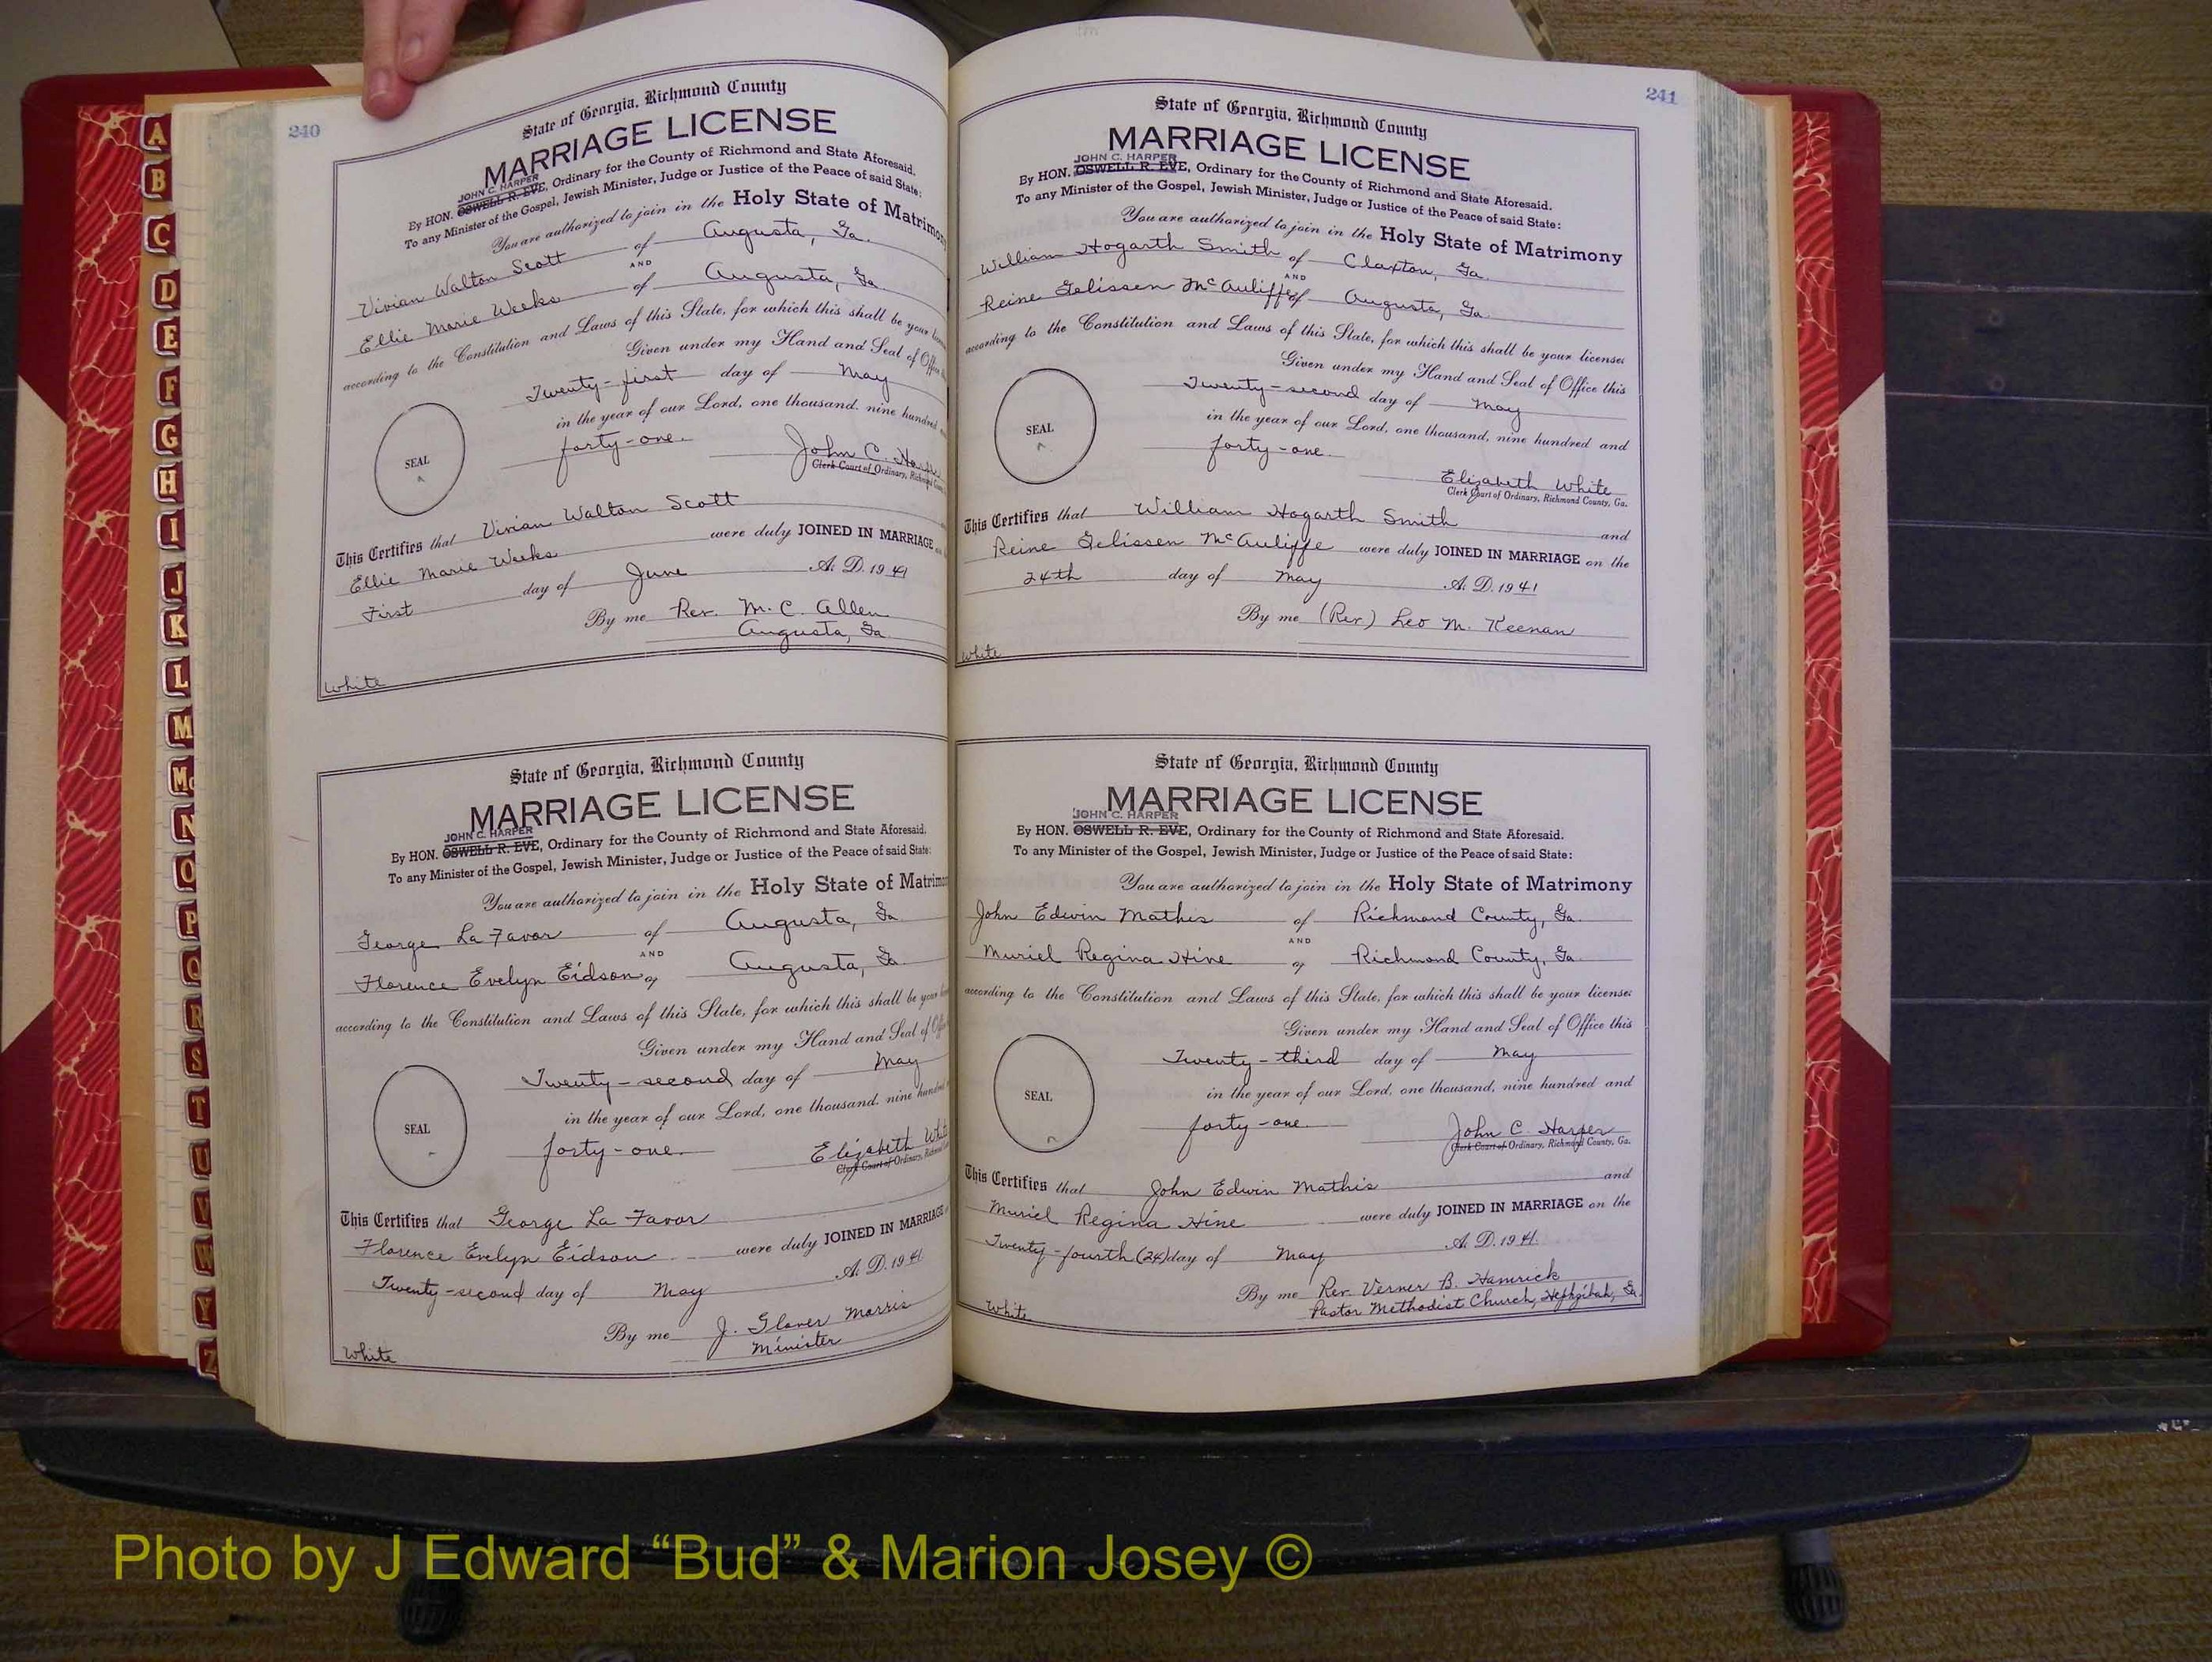 240
State of Georgia, Richmond County
MARRIAGE LICENSE
JOHN C. HARPER
By HON. OSWELL R. EVE, Ordinary for the County of Richmond and State Aforesaid.
To any Minister of the Gospel, Jewish Minister, Judge or Justice of the Peace of said State:
You are authorized to join in the Holy State of Matrimony
Vivian Walton Scott of Augusta, Ga.
AND
Ellie Marie Weeks of Augusta, Ga.
according to the Constitution and Laws of this State, for which this shall be your
Given under my Hand and Seal of Office
Twenty-first day of May
in the year of our Lord, one thousand, nine hundred
forty-one.
SEAL
John C.
Clerk Court of Ordinary,
This Certifies that Vivian Walton Scott
Ellie Marie Weeks were duly JOINED IN MARRIAGE
First day of June A. D. 1941
By me Rev. M. C. Allen
Augusta, Ga
White
State of Georgia, Richmond County
MARRIAGE LICENSE
JOHN C. HARPER
By HON. OSWELL R. EVE, Ordinary for the County of Richmond and State Aforesaid.
To any Minister of the Gospel, Jewish Minister, Judge or Justice of the Peace of said State:
You are authorized to join in the Holy State of
George La Favor of Augusta, Ga
AND
Florence Evelyn Eidson of Augusta, Ga
according to the Constitution and Laws of this State, for which this shall be your
Given under my Hand and Seal of
Twenty-second day of May
in the year of our Lord, one thousand, nine
forty-one.
SEAL
Elizabeth
Clerk Court of Ordinary,
This Certifies that George La Favor
Florence Evelyn Eidson were duly JOINED IN MARRIAGE
Twenty-second day of May A. D. 1941
By me J. Glover Morris
Minister
White
241
State of Georgia, Richmond County
MARRIAGE LICENSE
JOHN C. HARPER
By HON. OSWELL R. EVE, Ordinary for the County of Richmond and State Aforesaid.
To any Minister of the Gospel, Jewish Minister, Judge or Justice of the Peace of said State:
You are authorized to join in the Holy State of Matrimony
William Hogarth Smith of Claxton, Ga.
AND
Reine Gelissen McAuliffe of Augusta, Ga.
according to the Constitution and Laws of this State, for which this shall be your license:
Given under my Hand and Seal of Office this
Twenty-second day of May
in the year of our Lord, one thousand, nine hundred and
forty-one.
SEAL
Elizabeth White
Clerk Court of Ordinary, Richmond County, Ga.
This Certifies that William Hogarth Smith and
Reine Gelissen McAuliffe were duly JOINED IN MARRIAGE on the
24th day of May A. D. 1941
By me (Rev) Leo M. Keenan
White
State of Georgia, Richmond County
MARRIAGE LICENSE
JOHN C. HARPER
By HON. OSWELL R. EVE, Ordinary for the County of Richmond and State Aforesaid.
To any Minister of the Gospel, Jewish Minister, Judge or Justice of the Peace of said State:
You are authorized to join in the Holy State of Matrimony
John Edwin Mathis of Richmond County, Ga.
AND
Muriel Regina Hine of Richmond County, Ga.
according to the Constitution and Laws of this State, for which this shall be your license:
Given under my Hand and Seal of Office this
Twenty-third day of May
in the year of our Lord, one thousand, nine hundred and
forty-one.
SEAL
John C. Harper
Clerk Court of Ordinary, Richmond County, Ga.
This Certifies that John Edwin Mathis and
Muriel Regina Hine were duly JOINED IN MARRIAGE on the
Twenty-fourth (24) day of May A. D. 1941.
By me Rev. Verner B. Hamrick
Pastor Methodist Church, Hephzibah, Ga.
White
A
B
C
D
E
F
G
H
I
J
K
L
M
Mc
N
O
P
Q
R
S
T
U
V
W
Y
Z
Photo by J Edward “Bud” & Marion Josey ©